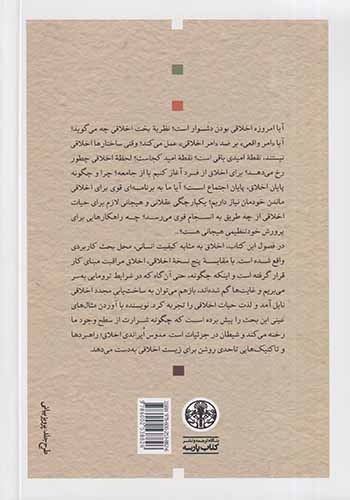 آیا امروزه اخلاقی بودن دشوار است؟ نظریهٔ بخت اخلاقی چه می‌گوید؟
آیا «امر واقعی»، بر ضد «امر اخلاقی»، عمل می‌کند؟ وقتی ساختارها اخلاقی
نیستند، نقطهٔ امیدی باقی است؟ نقطهٔ امید کجاست؟ لحظهٔ اخلاقی چطور
رخ می‌دهد؟ برای اخلاق از فرد آغاز کنیم یا از جامعه؟ چرا و چگونه
پایان اخلاق، پایان اجتماع است؟ آیا ما به برنامه‌ای قوی برای اخلاقی
ماندن خودمان نیاز داریم؟ یکپارچگی عقلانی و هیجانی لازم برای حیات
اخلاقی از چه طریق به انسجام قوی می‌رسد؟ چه راهکارهایی برای
پرورش خودتنظیمی هیجانی هست؟...
در فصول این کتاب، اخلاق به مثابه کیفیت انسانی، محل بحث کاربردی
واقع شده است. با مقایسهٔ پنج نسخهٔ اخلاقی، اخلاق مراقبت مبنای کار
قرار گرفته است و اینکه چگونه، حتی آن‌گاه که در شرایط ترومایی به‌سر
می‌بریم و غایت‌ها گم شده‌اند، بازهم می‌توان به ساخت‌یابی مجدد اخلاقی
نایل آمد و لذت حیات اخلاقی را تجربه کرد. نویسنده با آوردن مثال‌های
عینی این بحث را پیش برده است که چگونه شرارت از سطح وجود ما
رخنه می‌کند و شیطان در جزئیات است. مدوس اُپراندی اخلاق؛ راهبردها
و تاکتیک‌هایی تاحدی روشن برای زیست اخلاقی به‌دست می‌دهد.
طرح جلد: پرویز بیانی
بنگاه ترجمه و نشر
کتاب پارسه